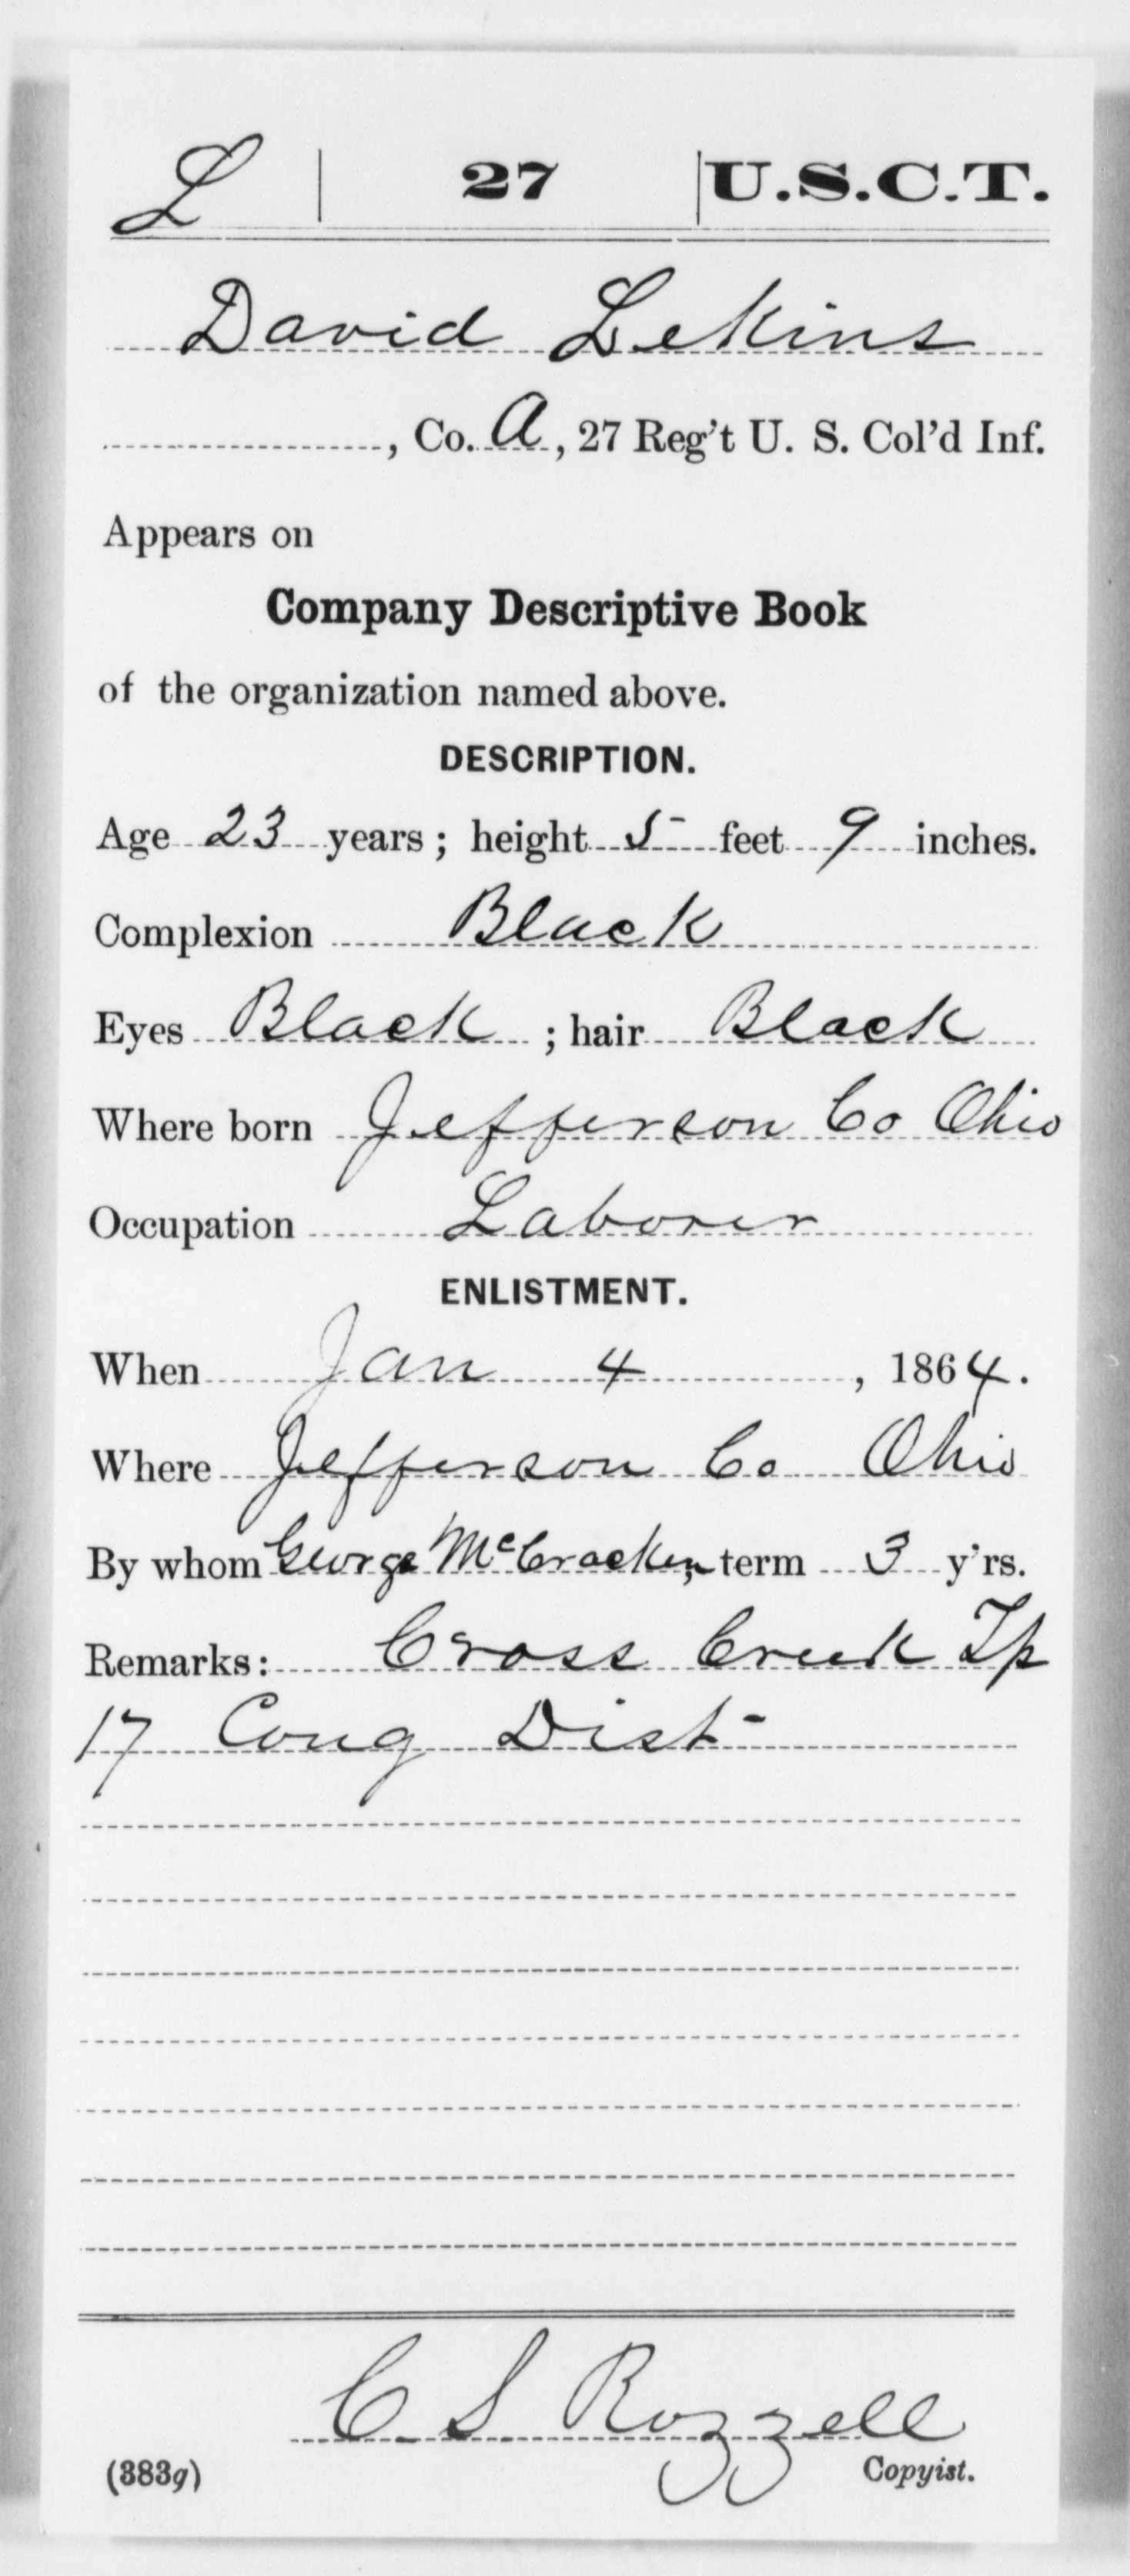 L | 27 | U.S.C.T.
David Lekins
, Co. A, 27 Reg't U. S. Col'd Inf.
Appears on
Company Descriptive Book
of the organization named above.
DESCRIPTION.
Age 23 years; height 5 feet 9 inches.
Complexion Black
Eyes Black; hair Black
Where born Jefferson Co Ohio
Occupation Laborer
ENLISTMENT.
When Jan 4, 1864.
Where Jefferson Co Ohio
By whom George McCracken; term 3 y'rs.
Remarks: Cross Creek Tp
17 Cong Dist
C S Rozzell
(383g) Copyist.